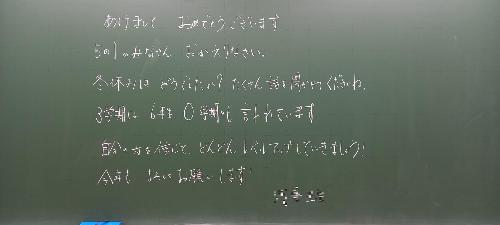 あけまして おめでとうございます
5の1のみなさん おかえりなさい。
冬休みは どうでしたか？たくさん話を聞かせてくださいね。
3学期は 6年生 0学期とも 言われています
自分の力を信じて、どんどん レベルアップしていきましょう！
今年も よろしくお願いします！